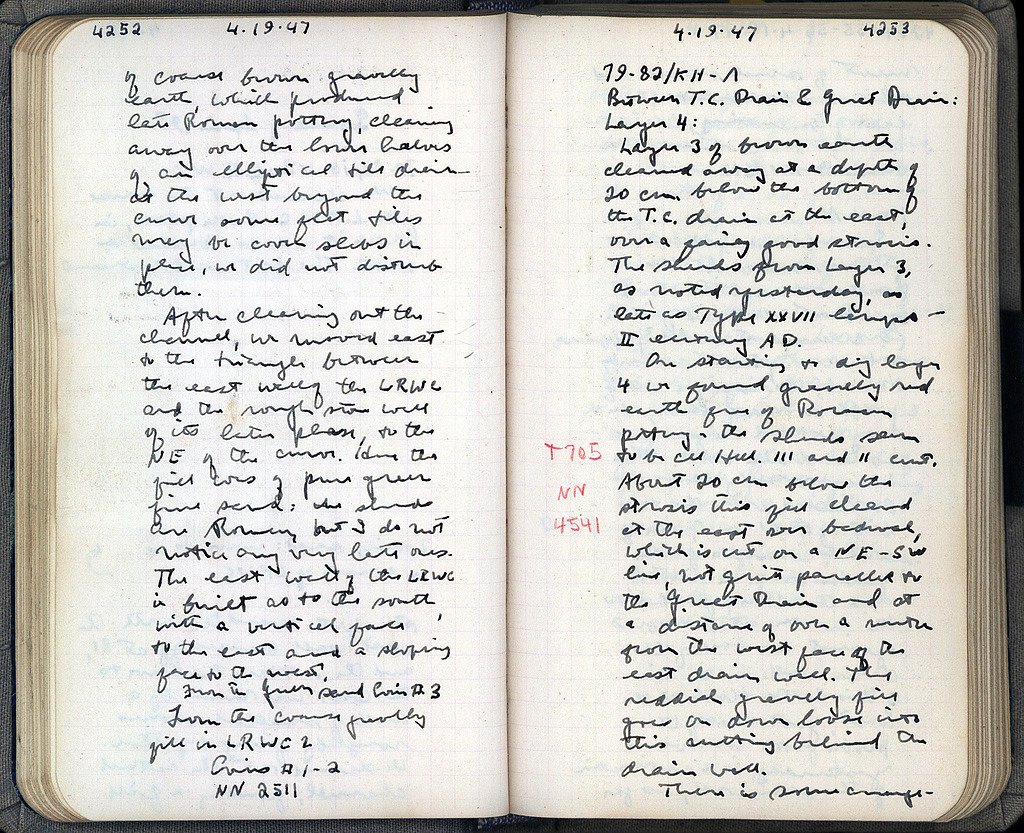 4252 4.19.47
of coarse brown gravelly
earth, which produced
late Roman pottery, clearing
away over the lower halves
of an elliptical tile drain-
at the west beyond the
curve some flat tiles
may be cover slabs in
place, we did not disturb
them.
After clearing out the
channel, we moved east
to the triangle between
the east wall of the LRWC
and the rough stone wall
of its later phase, to the
NE of the curve. Here the
fill was of pure green
fine sand; the sherds
are Roman, but I do not
notice any very late ones.
The east wall of the LRWC
is built as to the south,
with a vertical face
to the east and a sloping
face to the west.
From the green sand Coin #3
From the coarse gravelly
fill in LRWC 2
Coins #1-2
NN 2511
4.19.47 4253
79-82/KH-Λ
Between T.C. Drain & Great Drain:
Layer 4:
Layer 3 of brown earth
cleared away at a depth of
20 cm. below the bottom of
the T.C. drain at the east,
over a fairly good strosis.
The sherds from Layer 3,
as noted yesterday, as
late as Type XXVII lamps -
II century A.D.
On starting to dig layer
4 we found gravelly red
earth free of Roman
pottery - the sherds seem
to be all Hell. III and II cent.
About 20 cm below the
strosis this fill cleared
at the east over bedrock,
which is cut on a NE-SW
line, not quite parallel to
the Great Drain and at
a distance of over a metre
from the west face of the
east drain wall. This
reddish gravelly fill
goes on down loose into
this cutting behind the
drain wall.
There is some change-
T705
NN
4541